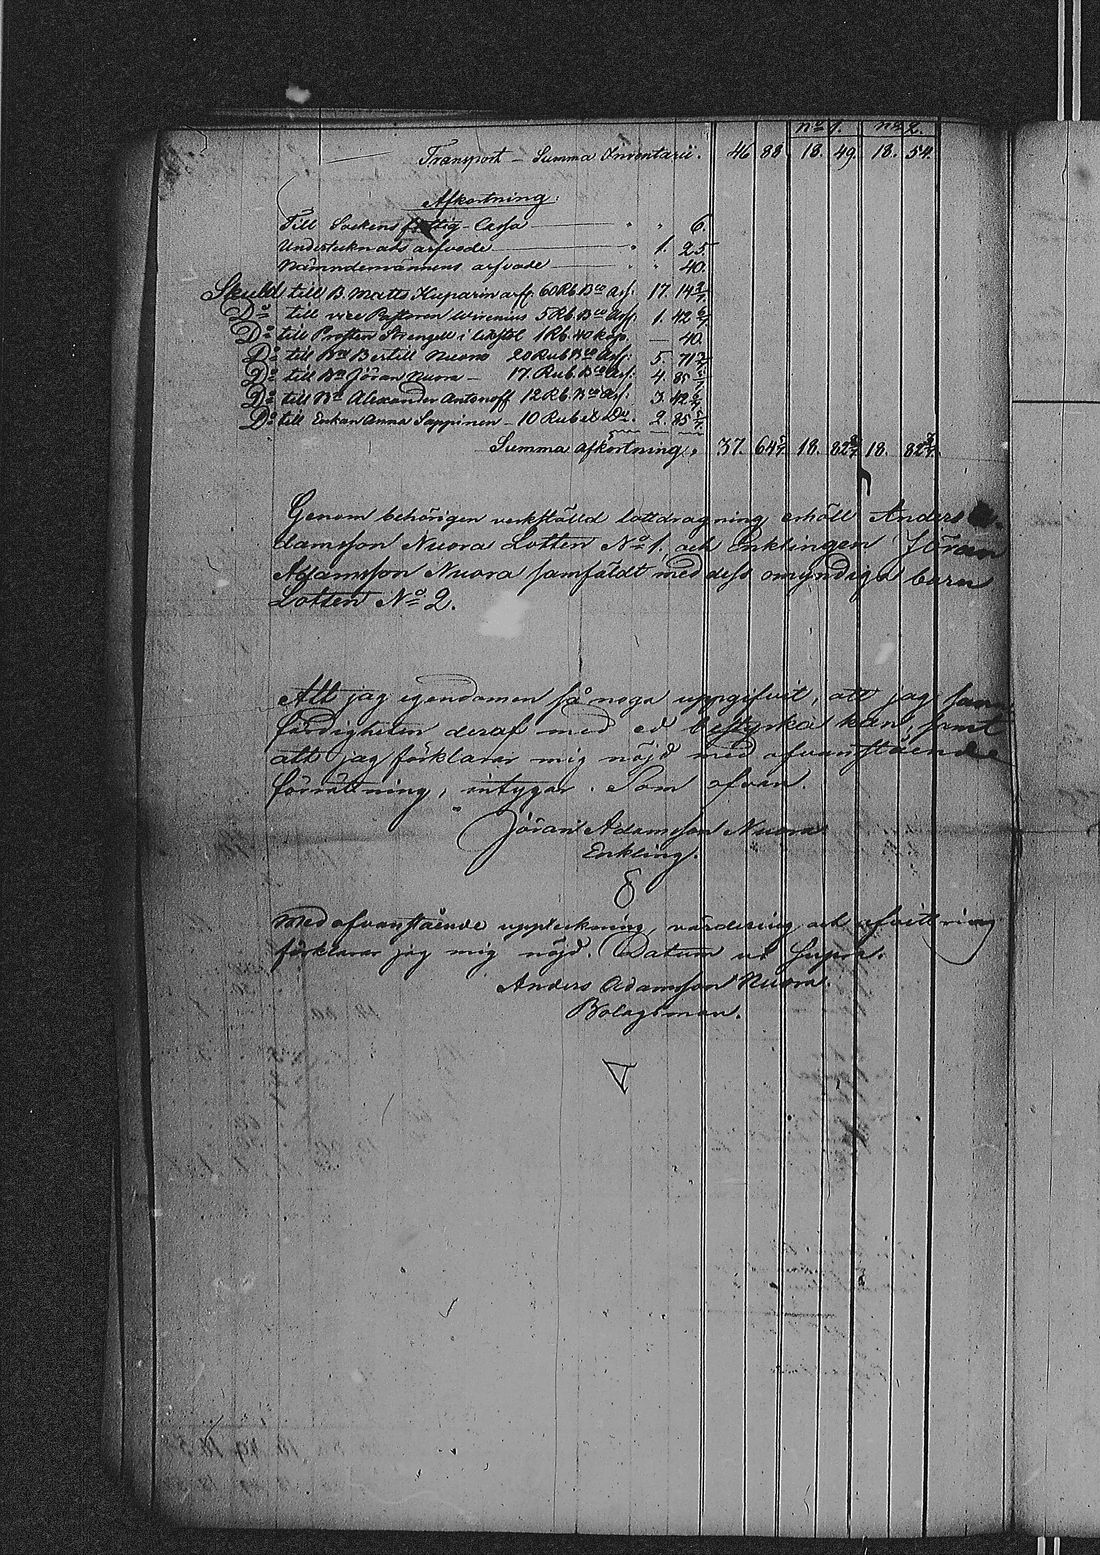 No 1. No 2.
Transport – Summa Inventarii. 46 88. 18. 49. 18. 54.
Afkortning.
Till Sockens fattig-Cassa " " 6.
Undertecknads arfvode " 1. 25.
Nämndemännens arfvode " " 40.
Skuld till B. Matts Kuparin arff 60 Rb. Bco Ass. 17. 14 2/7.
Do till vice Pastoren Wirenius 5 Rb Bco Ass. 1. 42 6/7.
Do till Prosten Strengell i likstol 1 Rb. 40 kop. — 40.
Do till Bn Bertill Nuora 20 Rub Bco Ass. 5. 71 3/7.
Do till Bn Jöran Nuora – 17. Rub. Bco Ass. 4. 85 5/7.
Do till Bn Alexander Antonoff 12 Rb. Bco Ass. 3. 42 6/7.
Do till Enkan Anna Sappinen – 10 Rub el. Do. 2. 85 5/7.
Summa afkortning. 37. 64 5/7. 18. 82 18. 82
Genom behörigen verkställd lottdragning erhöll Anders A-
damsson Nuora Lotten No 1, och Enklingen Jöran
Adamsson Nuora samfäldt med dess omyndiga barn
Lotten No 2.
Att jag egendomen så noga uppgifvit, att jag sann-
färdigheten deraf med ed bestyrka kan, samt
att jag förklarar mig nöjd med ofvanstående
förrättning, intygar. Som ofvan.
Jöran Adamsson Nuora
Enkling.
Med ofvanstående uppteckning, värdering och afvittring
förklarar jag mig nöjd. Datum ut Supra.
Anders Adamsson Nuora.
Bolagsman.